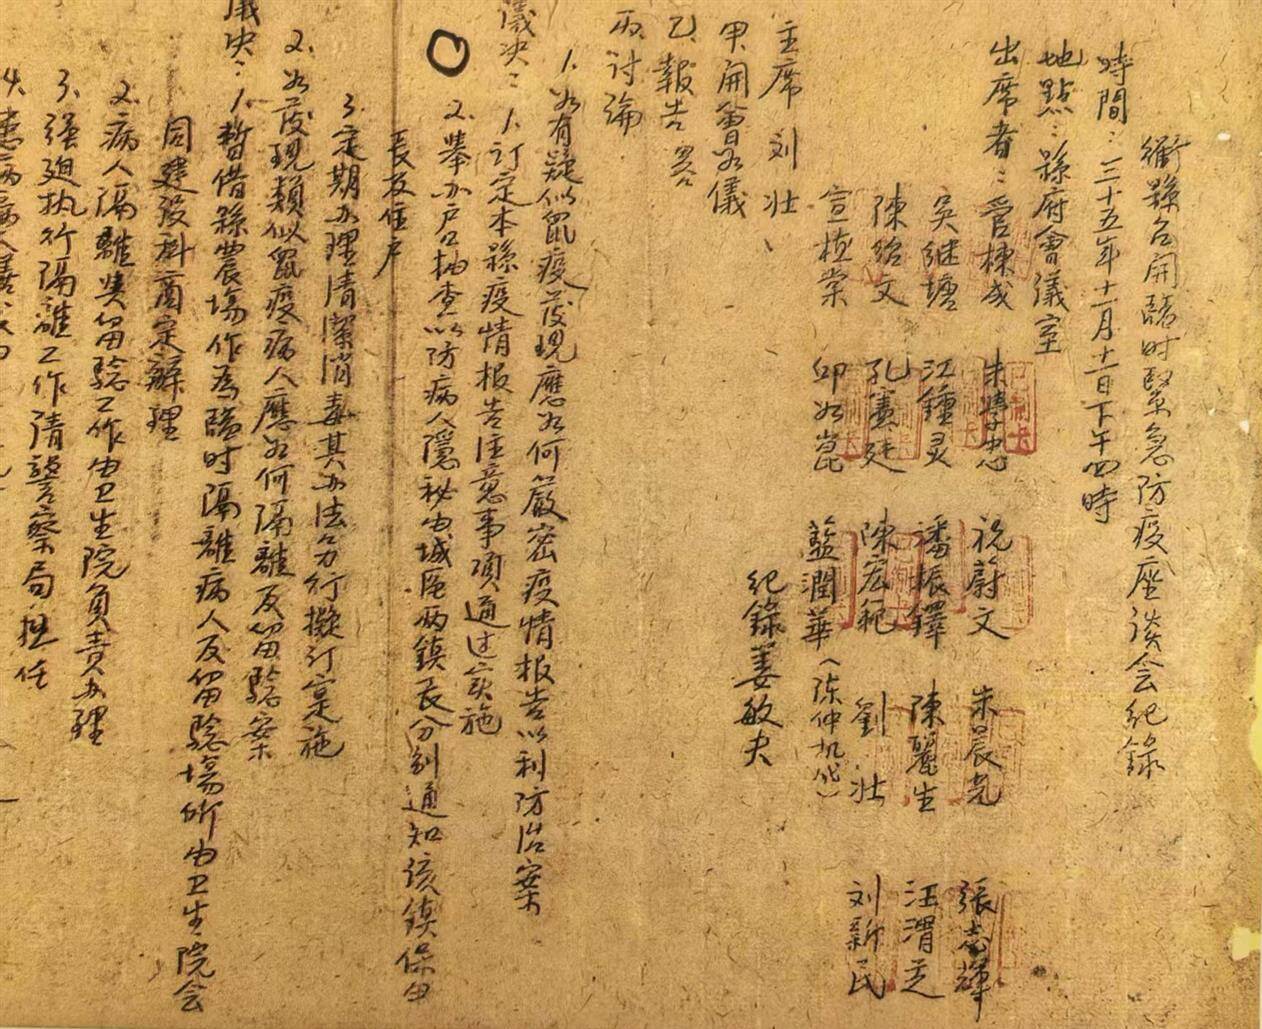 衢縣召開臨时緊急防疫座谈会纪錄
時間：三十五年十一月十一日下午四時
地點：縣府會議室
出席者：管棟成 朱 忠 祝蔚文 朱晨光 張志輝
吳继塘 江鍾灵 潘振鐸 陳麗生 汪渭芝
陳紹文 孔憲廷 陳宏範 劉壯 刘新民
宣植棠 邱如崑 藍潤華（陈仲机代）
主席 刘壮 纪錄姜敏夫
甲、開會如儀
乙、報告 畧
丙、討論
1、如有疑似鼠疫發現應如何嚴密疫情报告以利防治案
議决：1、订定本縣疫情报告注意事項通过实施
2、举办户口抽查以防病人隱秘由城 两鎮長分别通知该鎮保甲
長及住户
3、定期办理清潔消毒其办法另行擬订实施
2、如發現類似鼠疫病人應如何隔離及留驗案
議决：1、暫借縣農場作為臨时隔離病人及留驗場所由卫生院会
同建設科商定辦理
2、病人隔離與留驗工作由卫生院負責办理
3、强廹执行隔離工作請警察局担任
4、患病病人